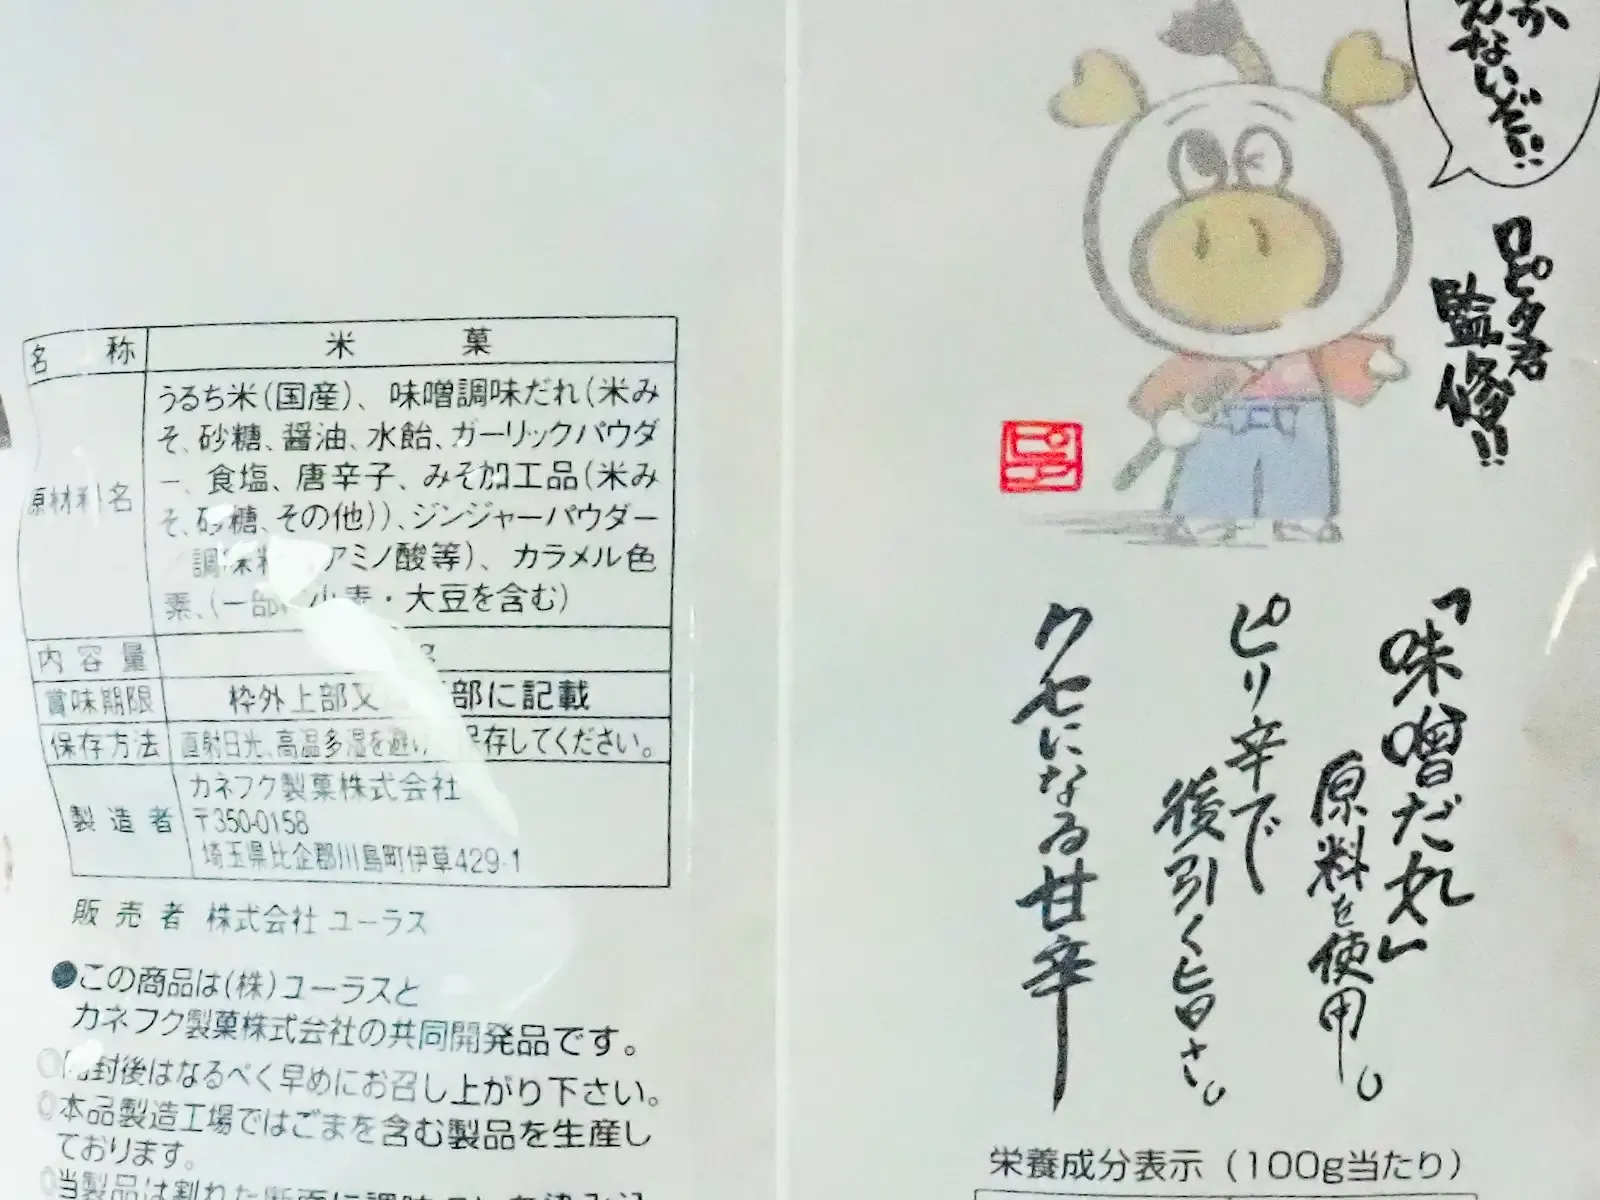 名称 米菓
原材料名
うるち米(国産)、味噌調味だれ(米み
そ、砂糖、醤油、水飴、ガーリックパウダ
ー、食塩、唐辛子、みそ加工品(米み
そ、砂糖、その他))、ジンジャーパウダー
調味料 アミノ酸等)、カラメル色
素、(一部 小麦・大豆を含む)
内容量 g
賞味期限 枠外上部又 部に記載
保存方法 直射日光、高温多湿を避け 保存してください。
製造者
カネフク製菓株式会社
〒350-0158
埼玉県比企郡川島町伊草429-1
販売者 株式会社ユーラス
●この商品は(株)ユーラスと
カネフク製菓株式会社の共同開発品です。
◎開封後はなるべく早めにお召し上がり下さい。
◎本品製造工場ではごまを含む製品を生産し
ております。
◎当製品は割れた断面に調味
ないぜい!!
ピタ君
監修!!
「味噌だ丸」
原料を使用。
ピリ辛で
後引く旨さ。
クセになる甘辛
栄養成分表示(100g当たり)